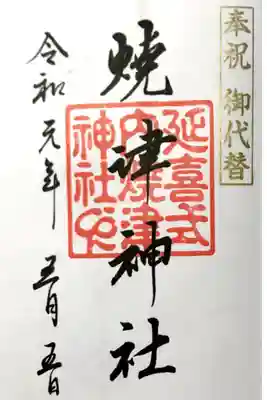 奉祝 御代替
焼津神社
延喜式
内焼津
神社之
令和元年 五月 五日